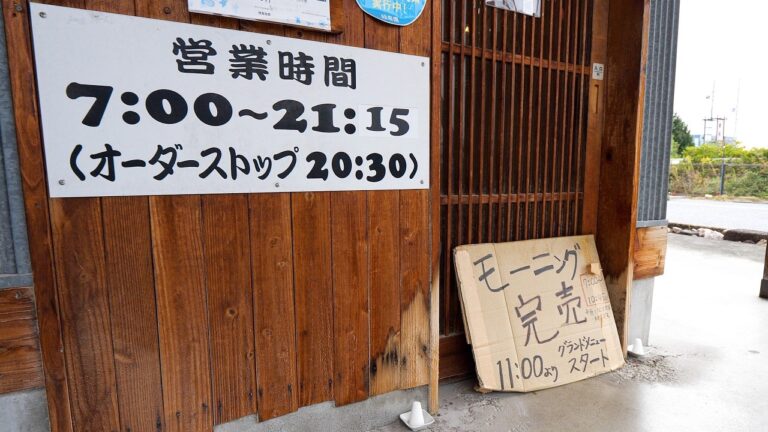 営業時間
7:00~21:15
(オーダーストップ 20:30)
モーニング
完売
11:00より
グランドメニュー
スタート